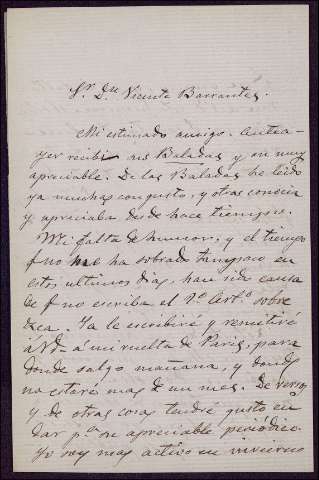 Sr. Dn. Vicente Barrantes.
Mi estimado amigo. Antea-
yer recibí sus Baladas y su muy
apreciable. De las Baladas he leido
ya muchas con gusto, y otras conocia
y apreciaba desde hace tiempo.
Mi falta de humor, y el tiempo
q no me ha sobrado tampoco en
estos ultimos dias, han sido causa
de q no escriba el 1o. Arto. sobre
Ya le escribiré y remitiré
á Vd. á mi vuelta de Paris, para
donde salgo mañana, y donde
no estaré mas de un mes. De versos
y de otras cosas tendré gusto en
dar pa. su apreciable periódico.
Yo soy mas activo en